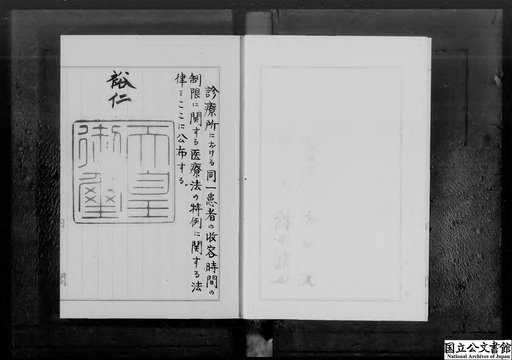 診療所における同一患者の収容時間の
制限に関する医療法の特例に関する法
律をここに公布する。
裕仁
天皇
御璽
国立公文書館
National Archives of Japan